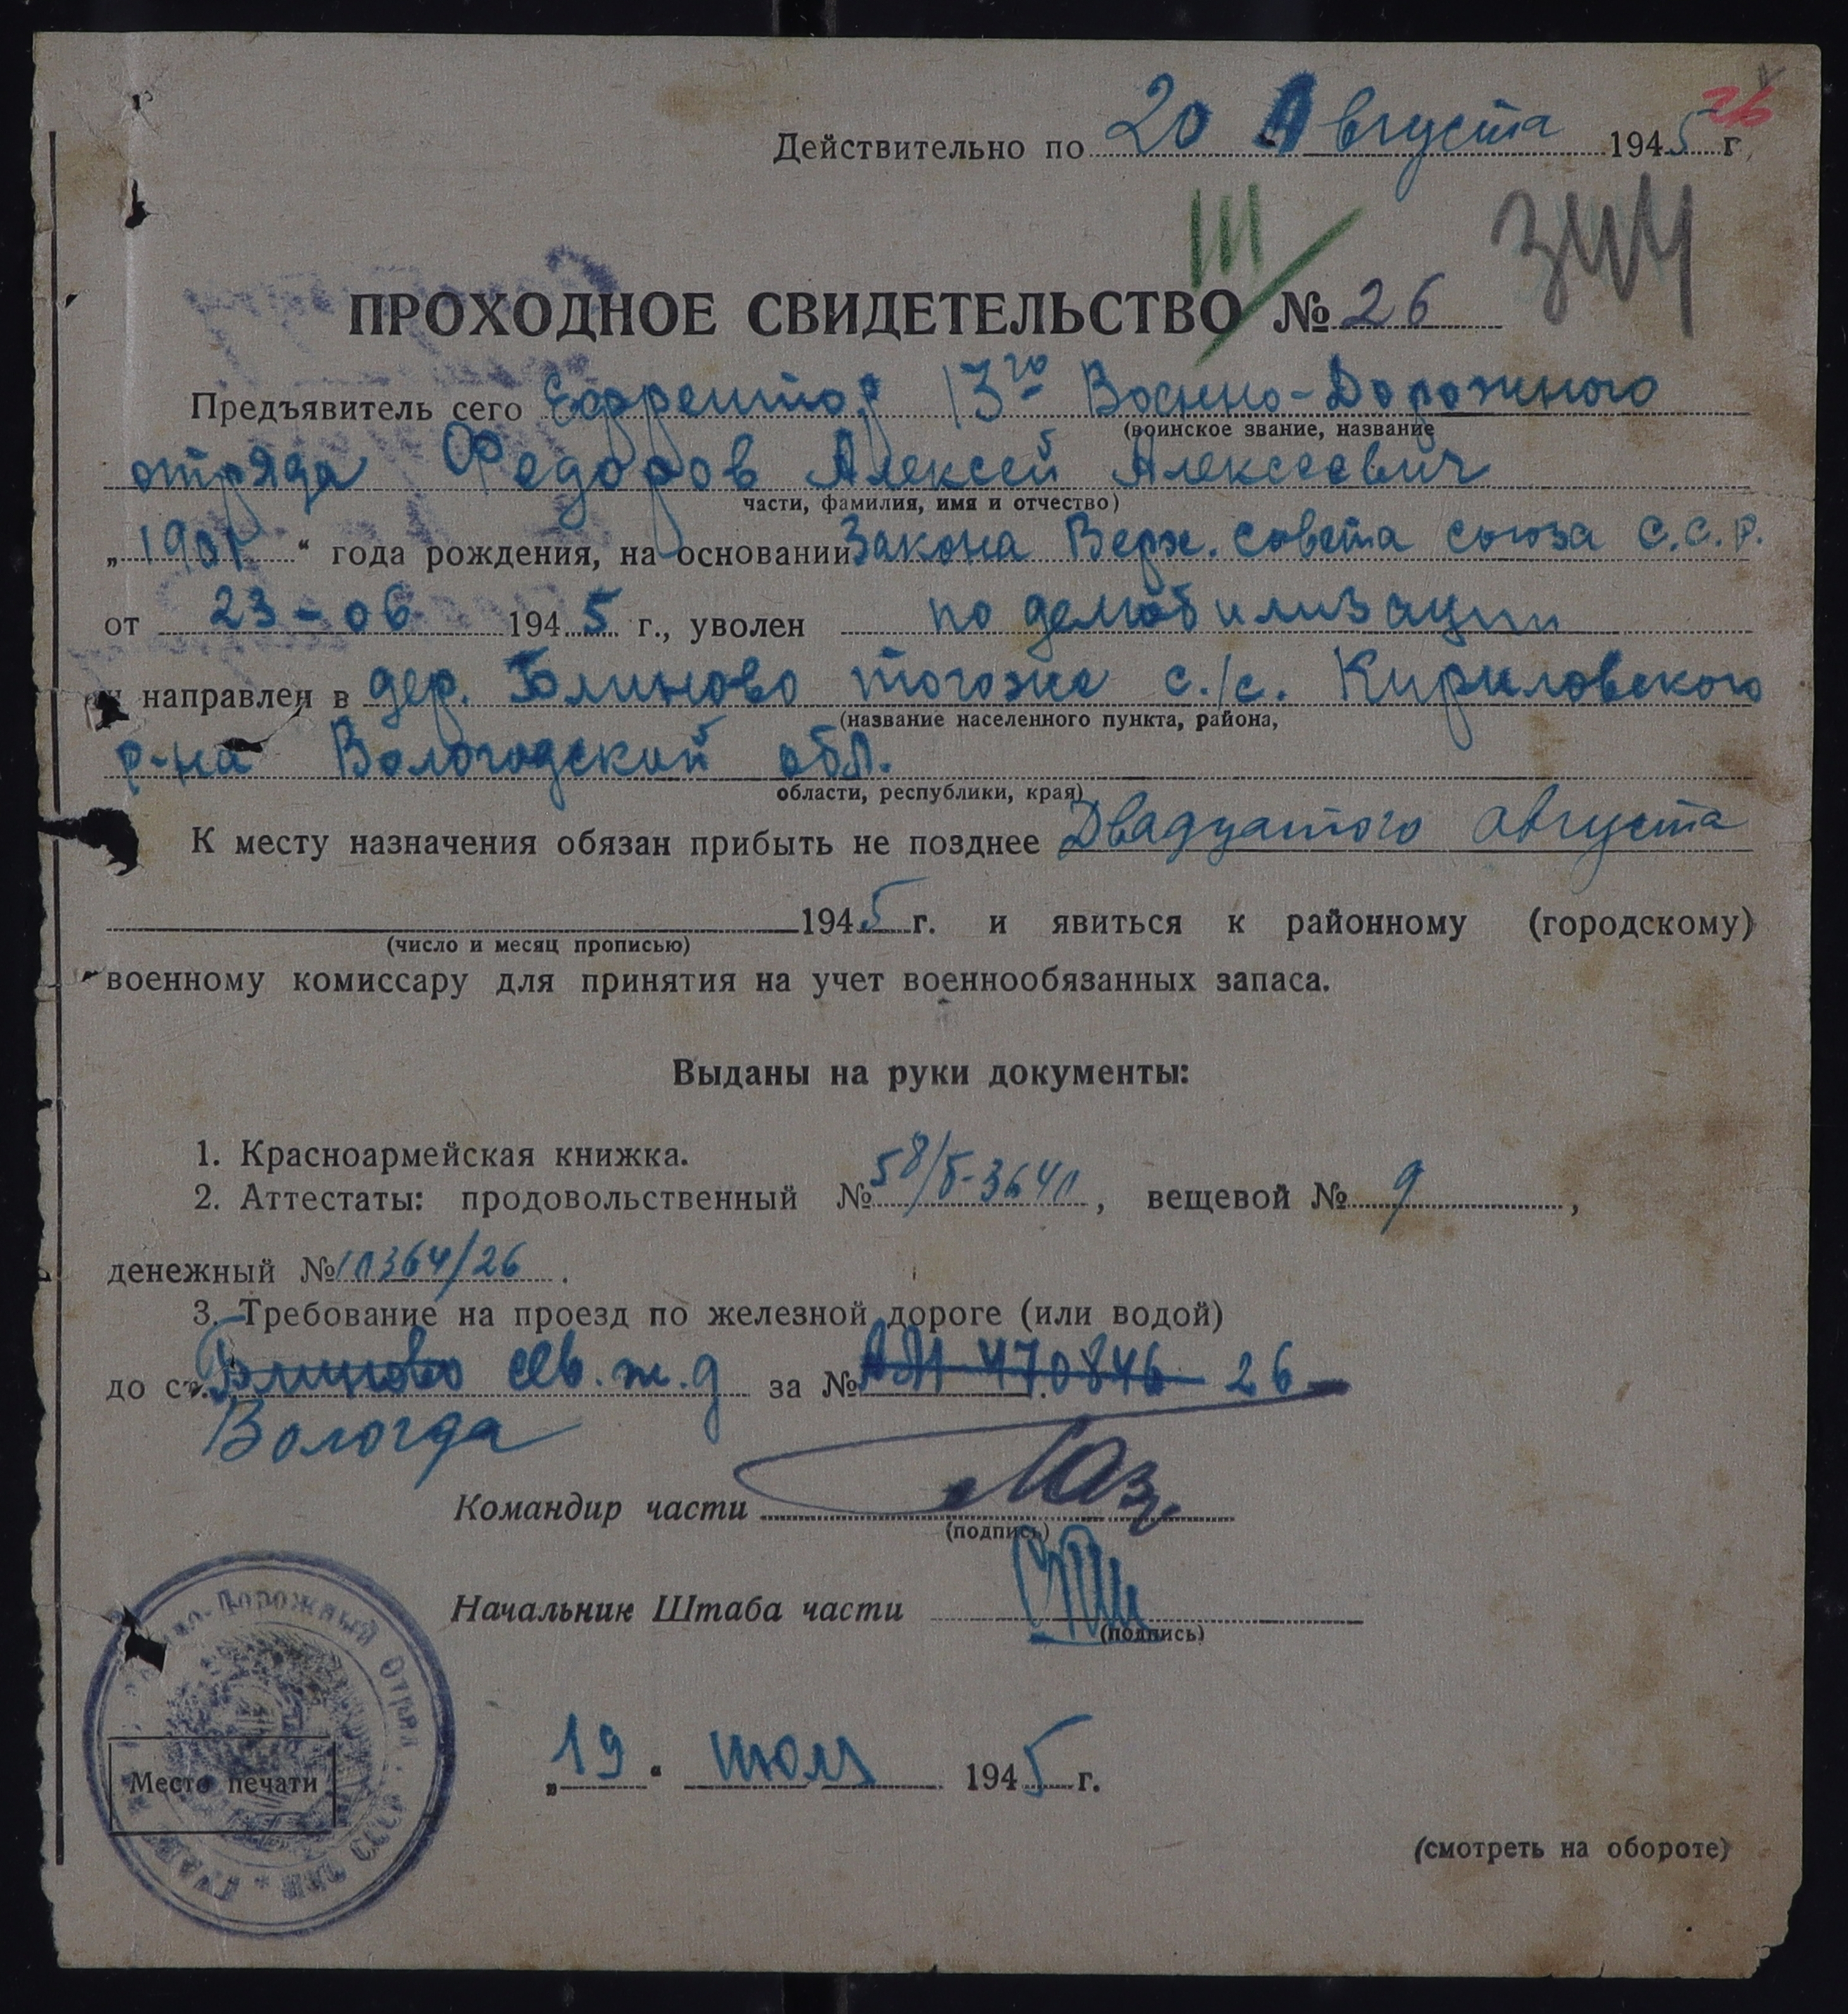 26
Действительно по 20 Августа 1945 г.
III
344
ПРОХОДНОЕ СВИДЕТЕЛЬСТВО № 26
Предъявитель сего Ефрейтор 13го Военно-Дорожного
(воинское звание, название
отряда Федоров Алексей Алексеевич
части, фамилия, имя и отчество)
„1901“ года рождения, на основании Закона Верх. совета союза С.С.Р.
от 23-06 1945 г., уволен по демобилизации
и направлен в дер. Блиново тогоже с./с. Кириловского
(название населенного пункта, района,
р-на Вологодский обл.
области, республики, края)
К месту назначения обязан прибыть не позднее Двадцатого августа
1945 г. и явиться к районному (городскому)
(число и месяц прописью)
военному комиссару для принятия на учет военнообязанных запаса.
Выданы на руки документы:
1. Красноармейская книжка.
2. Аттестаты: продовольственный № 58/, вещевой № 9,
денежный № 364/26.
3. Требование на проезд по железной дороге (или водой)
до ст. Блиново сев. ж. д за № 470846 26
Вологда
Командир части
(подпись)
Начальник Штаба части
(подпись)
Дорожный Отряд
СССР
Место печати
„19“ июля 1945 г.
(смотреть на обороте)